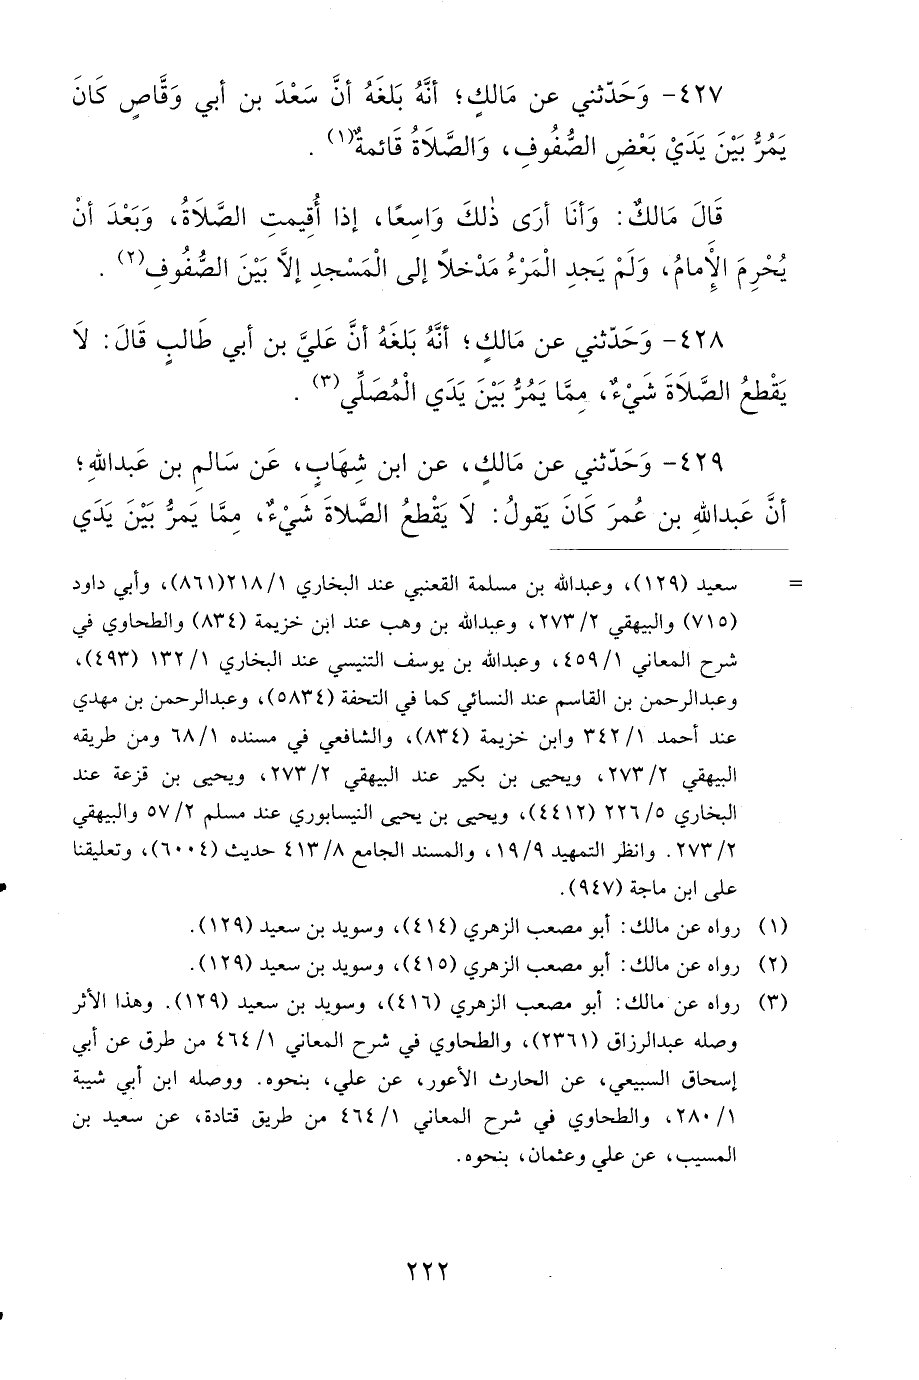 ٤٢٧- وَحَدّثني عن مَالكٍ؛ أنَّهُ بَلغَهُ أنَّ سَعْدَ بن أبي وَقَّاصٍ كَانَ
يَمُرُّ بَيْنَ يَدَيْ بَعْضِ الصُّفُوفِ، وَالصَّلَاةُ قَائمةٌ(١) .
قَالَ مَالكٌ: وَأنَا أرَى ذٰلكَ وَاسِعًا، إذا أُقِيمتِ الصَّلَاةُ، وَبَعْدَ أنْ
يُحْرِمَ الإْمامُ، وَلَمْ يَجدِ الْمَرْءُ مَدْخلاً إلى الْمَسْجدِ إلاَّ بَيْنَ الصُّفُوفِ(٢) .
٤٢٨- وَحَدّثني عن مَالكٍ؛ أنَّهُ بَلغَهُ أنَّ عَليَّ بن أبي طَالبٍ قَالَ: لَا
يَقْطعُ الصَّلَاةَ شَيْءٌ، مِمَّا يَمُرُّ بَيْنَ يَدَي الْمُصَلِّي(٣) .
٤٢٩- وَحَدّثني عن مَالكٍ، عن ابن شِهَابٍ، عَن سَالمِ بن عَبداللهِ؛
أنَّ عَبداللهِ بن عُمرَ كَانَ يَقولُ: لَا يَقْطعُ الصَّلاةَ شَيْءٌ، مِمَّا يَمرُّ بَيْنَ يَدَي
= سعيد (١٢٩)، وعبدالله بن مسلمة القعنبي عند البخاري ١/ ٢١٨(٨٦١)، وأبي داود
(٧١٥) والبيهقي ٢/ ٢٧٣، وعبدالله بن وهب عند ابن خزيمة (٨٣٤) والطحاوي في
شرح المعاني ١/ ٤٥٩، وعبدالله بن يوسف التنيسي عند البخاري ١/ ١٣٢ (٤٩٣)،
وعبدالرحمن بن القاسم عند النسائي كما في التحفة (٥٨٣٤)، وعبدالرحمن بن مهدي
عند أحمد ١/ ٣٤٢ وابن خزيمة (٨٣٤)، والشافعي في مسنده ١/ ٦٨ ومن طريقه
البيهقي ٢/ ٢٧٣، ويحيى بن بكير عند البيهقي ٢/ ٢٧٣، ويحيى بن قزعة عند
البخاري ٥/ ٢٢٦ (٤٤١٢)، ويحيى بن يحيى النيسابوري عند مسلم ٢/ ٥٧ والبيهقي
٢/ ٢٧٣. وانظر التمهيد ٩/ ١٩، والمسند الجامع ٨/ ٤١٣ حديث (٦٠٠٤)، وتعليقنا
على ابن ماجة (٩٤٧).
(١) رواه عن مالك: أبو مصعب الزهري (٤١٤)، وسويد بن سعيد (١٢٩).
(٢) رواه عن مالك: أبو مصعب الزهري (٤١٥)، وسويد بن سعيد (١٢٩).
(٣) رواه عن مالك: أبو مصعب الزهري (٤١٦)، وسويد بن سعيد (١٢٩). وهذا الأثر
وصله عبدالرزاق (٢٣٦١)، والطحاوي في شرح المعاني ١/ ٤٦٤ من طرق عن أبي
إسحاق السبيعي، عن الحارث الأعور، عن علي، بنحوه. ووصله ابن أبي شيبة
١/ ٢٨٠، والطحاوي في شرح المعاني ١/ ٤٦٤ من طريق قتادة، عن سعيد بن
المسيب، عن علي وعثمان، بنحوه.
٢٢٢